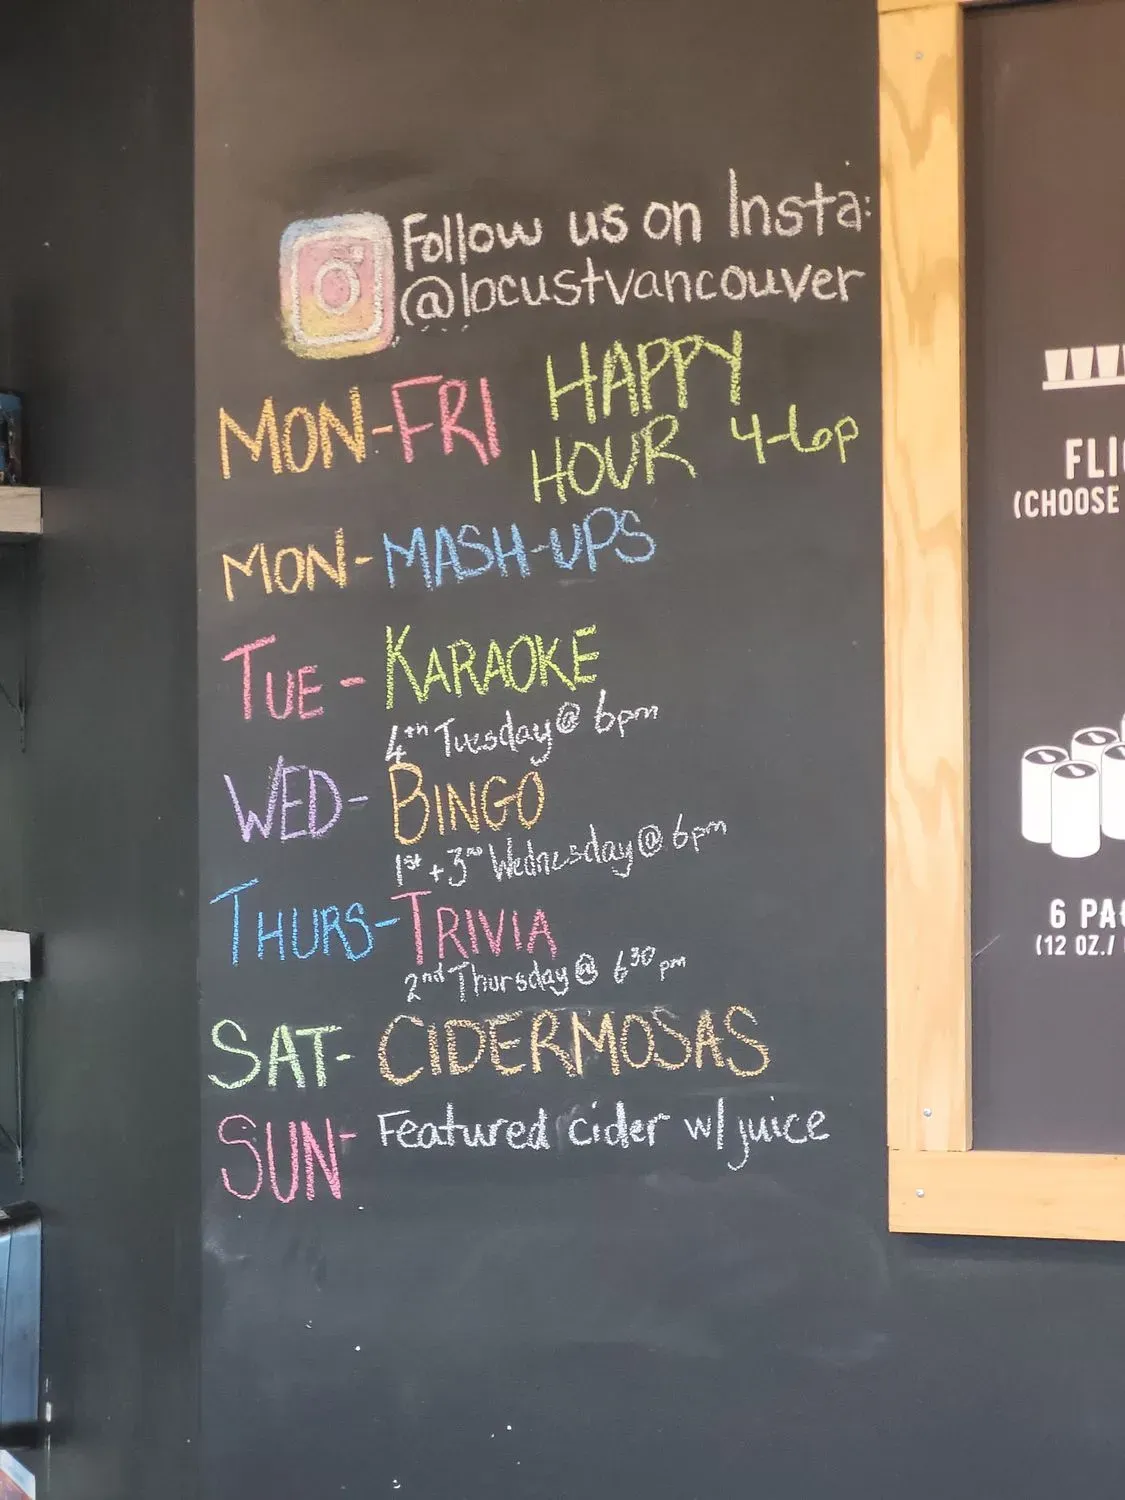 Follow us on Insta:
@locustvancouver
MON-FRI HAPPY
HOUR 4-6p
MON-MASH-UPS
TUE-KARAOKE
4th Tuesday@ 6pm
WED-BINGO
1st + 3rd Wednesday@ 6pm
THURS-TRIVIA
2nd Thursday@ 630 pm
SAT-CIDERMOSAS
SUN-Featured cider w/ juice
(CHOOSE
6
(12 OZ./